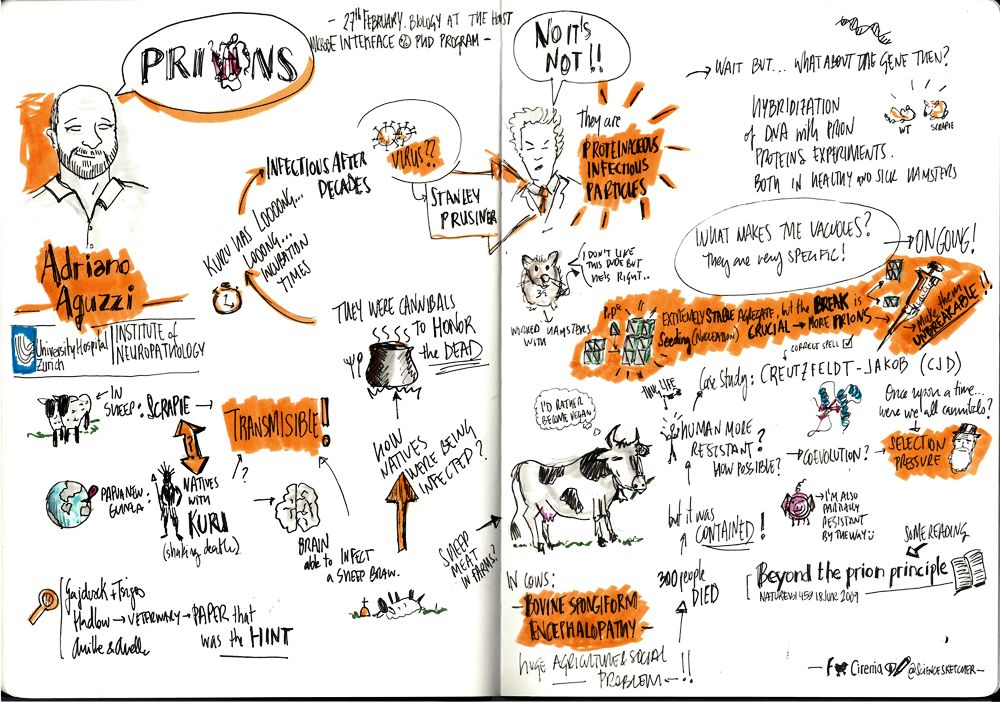 PRIONS
- 27th FEBRUARY. BIOLOGY AT THE HOST
MICROBE INTERFACE @ PHD PROGRAM -
Adriano
Aguzzi
University Hospital
Zurich
INSTITUTE of
NEUROPATHOLOGY
INFECTIOUS AFTER
DECADES
KURU WAS LOOOONG...
LOOONG...
INCUBATION
TIMES
VIRUS??
STANLEY
PRUSINER
THEY WERE CANNIBALS
TO HONOR
the DEAD
IN
SHEEP: SCRAPIE →
TRANSMISIBLE!!
?
PAPUA NEW
GUINEA:
NATIVES
WITH
KURU
(shaking death)
?
BRAIN
able to INFECT
A SHEEP BRAIN.
HOW
NATIVES
WERE BEING
INFECTED?
SHEEP
MEAT
IN FARMS?
Hadlow → VETERINARY → PAPER that
was the HINT
NO IT'S
NOT!!
they are
PROTEINACEOUS
INFECTIOUS
PARTICLES
→ WAIT BUT... WHAT ABOUT THE GENE THEN?
HYBRIDIZATION
of DNA with PRION
PROTEINS EXPERIMENTS.
BOTH IN HEALTHY AND SICK HAMSTERS
WT
SCRAPIE
I DON'T LIKE
THIS DUDE BUT
HE'S RIGHT..
WORKED HAMSTERS
WITH
WHAT MAKES THE VACUOLES?
They are very SPECIFIC!
→ ONGOING!
EXTREMELY STABLE AGREGATE, but the BREAK is
Seeding (NUCLEATION) CRUCIAL → MORE PRIONS
→ Make them
UNBREAKABLE!!
CORRECT SPELL
Case Study: CREUTZFELDT-JAKOB (CJD)
I'D RATHER
BECOME VEGAN
HUMAN MORE
RESISTANT?
HOW POSSIBLE?
Once upon a time...
were we all cannibals?
COEVOLUTION? →
SELECTION
PRESSURE
→ I'M ALSO
PARTIALLY
RESISTANT
BY THE WAY
but it was
CONTAINED!
300 people
DIED
IN COWS:
- BOVINE SPONGIFORM
ENCEPHALOPATHY -
HUGE AGRICULTURE & SOCIAL
PROBLEM - !!
SOME READING
Beyond the prion principle
NATURE Vol 459 18 JUN 2009
Cirenia
@SCIENCESKETCHER -